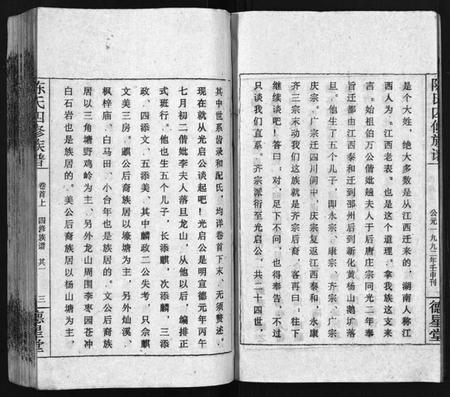 陈氏四修族谱
公元一九九二年壬申刊
德星堂
是个大姓，绝大多数是从江西迁来的，湖南人称江
西人为，江西老表，也是这个道理，拿我族这支来
言，始祖伯万公偕妣赵夫人于后唐庄宗同光二年奉
旨迁都由江西泰和迁到邵州后到新化黄杨山鹅圹落
旦，他生了五个儿子，即永宗、康宗、齐宗、广宗
庆宗，广宗迁四川阆中，庆宗复返江西泰和，永康
齐三宗未动我们这族就是齐宗后裔，客再曰：往下
继续谈吧！答曰：对，足下不问，也得奉告，不过
只谈我们直系，齐宗派衍至光启公，共二十四世，
其中世系皆录和配氏，均详卷首下末，无须赘述，
现在就从光启公谈起吧！光启公是明宣德元年丙午
七月初二偕妣李夫人落旦龙山，从他以后，编排正
式班行。他也生五个儿子，长添麒，次添麟，三添
政、四添文、五添美、其中麟政二公失考，只余麒
文美三房。麒公后裔族居以壕塘为主，另外灿溪、
枫梓庙、白马田、小台年也是族居的。文公后裔族
居以三角塘野鸡岭为主，另外龙山周围李枣园苍冲
白石岩也是族居的。美公后裔族居以杨山塘为主，
陈氏四修族谱
卷首上
四修族谱
其
三
德星堂